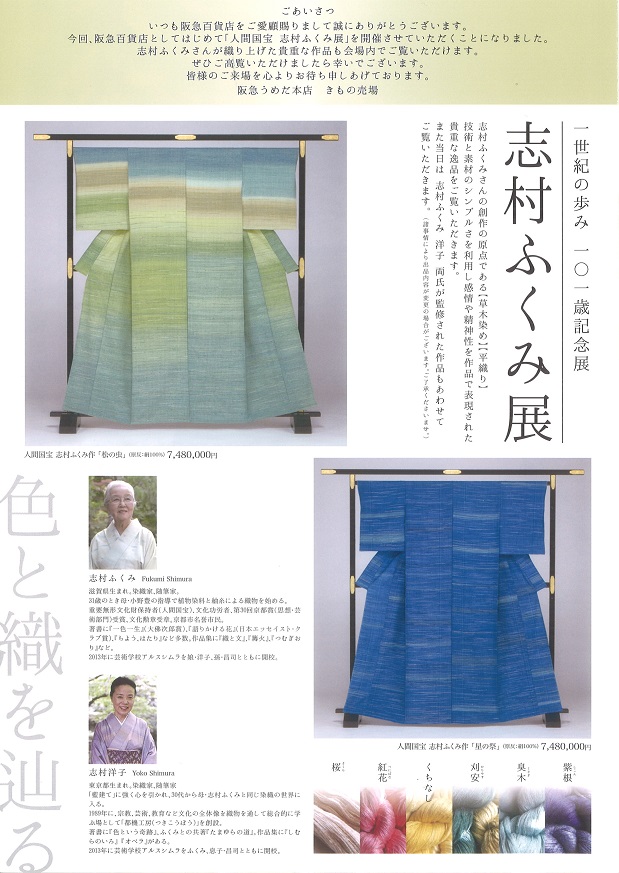 ごあいさつ
いつも阪急百貨店をご愛顧賜りまして誠にありがとうございます。
今回、阪急百貨店としてはじめて「人間国宝 志村ふくみ展」を開催させていただくことになりました。
志村ふくみさんが織り上げた貴重な作品も会場内でご覧いただけます。
ぜひご高覧いただけましたら幸いでございます。
皆様のご来場を心よりお待ち申しあげております。
阪急うめだ本店 きもの売場
一世紀の歩み 一〇一歳記念展
志村ふくみ展
志村ふくみさんの創作の原点である【草木染め】【平織り】
技術と素材のシンプルさを利用し感情や精神性を作品で表現された
貴重な逸品をご覧いただきます。
また当日は 志村ふくみ 洋子 両氏が監修された作品もあわせて
ご覧いただきます。(諸事情により出品内容が変更の場合がございます。ご了承くださいませ。)
人間国宝 志村ふくみ作「松の虫」(原反:絹100%) 7,480,000円
色と織を辿る
志村ふくみ Fukumi Shimura
滋賀県生まれ。染織家、随筆家。
31歳のとき母・小野豊の指導で植物染料と紬糸による織物を始める。
重要無形文化財保持者(人間国宝)、文化功労者、第30回京都賞(思想・芸
術部門)受賞、文化勲章受章。京都市名誉市民。
著書に『一色一生』(大佛次郎賞)、『語りかける花』(日本エッセイスト・ク
ラブ賞)、『ちよう、はたり』など多数。作品集に『織と文』、『篝火』、『つむぎおり』など。
2013年に芸術学校アルスシムラを娘・洋子、孫・昌司とともに開校。
志村洋子 Yoko Shimura
東京都生まれ。染織家、随筆家
「藍建て」に強く心を引かれ、30代から母・志村ふくみと同じ染織の世界に
入る。
1989年に、宗教、芸術、教育など文化の全体像を織物を通して総合的に学
ぶ場として「都機工房(つきこうぼう)」を創設。
著書に『色という奇跡』、ふくみとの共著『たまゆらの道』。作品集に『しむ
らのいろ』『オペラ』がある。
2013年に芸術学校アルスシムラをふくみ、息子・昌司とともに開校。
人間国宝 志村ふくみ作「星の祭」(原反:絹100%) 7,480,000円
紫根
臭木
刈安
くちなし
紅花
桜